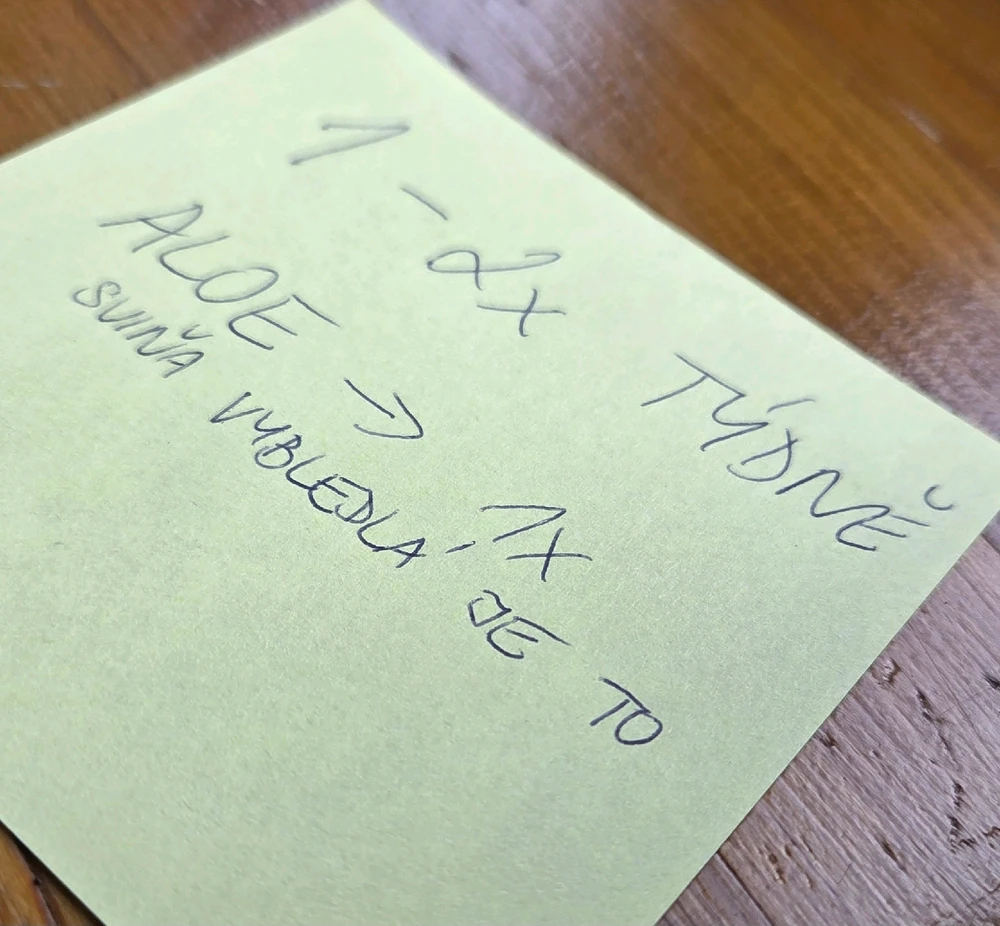 1 - 2x TÝDNĚ
ALOE → 1x
SVIŇA VYBLEDLA, JE TO